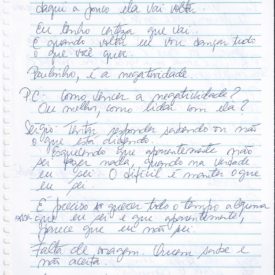 Daqui a pouco ela vai voltar
Eu tenho certeza que vai.
E quando voltar eu vou dançar tudo
o que você quer.
Paulinho, e a negatividade
PC: Como vencer a negatividade?
Ou melhor, como lidar com ela?
Sérgio: Tentar responder sabendo ou não
o que está dizendo.
Esquecendo que aparentemente não
sei fazer nada, quando na verdade
eu sei. O difícil é mostrar o que
eu sei.
É preciso querer todo o tempo alguma
que eu sei e que aparentemente,
parece que eu não sei.
Falta de coragem. Quem sabe e
não aceita.